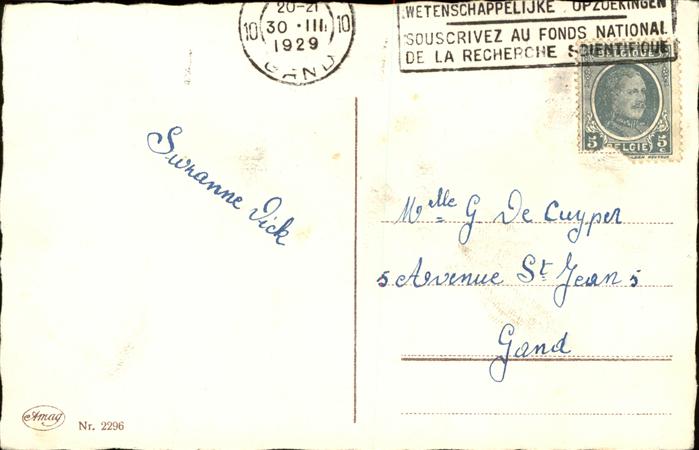 20-21
10 30 · III 10
1929
GAND
WETENSCHAPPELIJKE OPZOEKINGEN
SOUSCRIVEZ AU FONDS NATIONAL
DE LA RECHERCHE SCIENTIFIQUE
BELGIQUE
5 BELGIE 5
C
Suzanne Dick
Melle G De Cuyper
5 Avenue St Jean 5
Gand
Amag
Nr. 2296